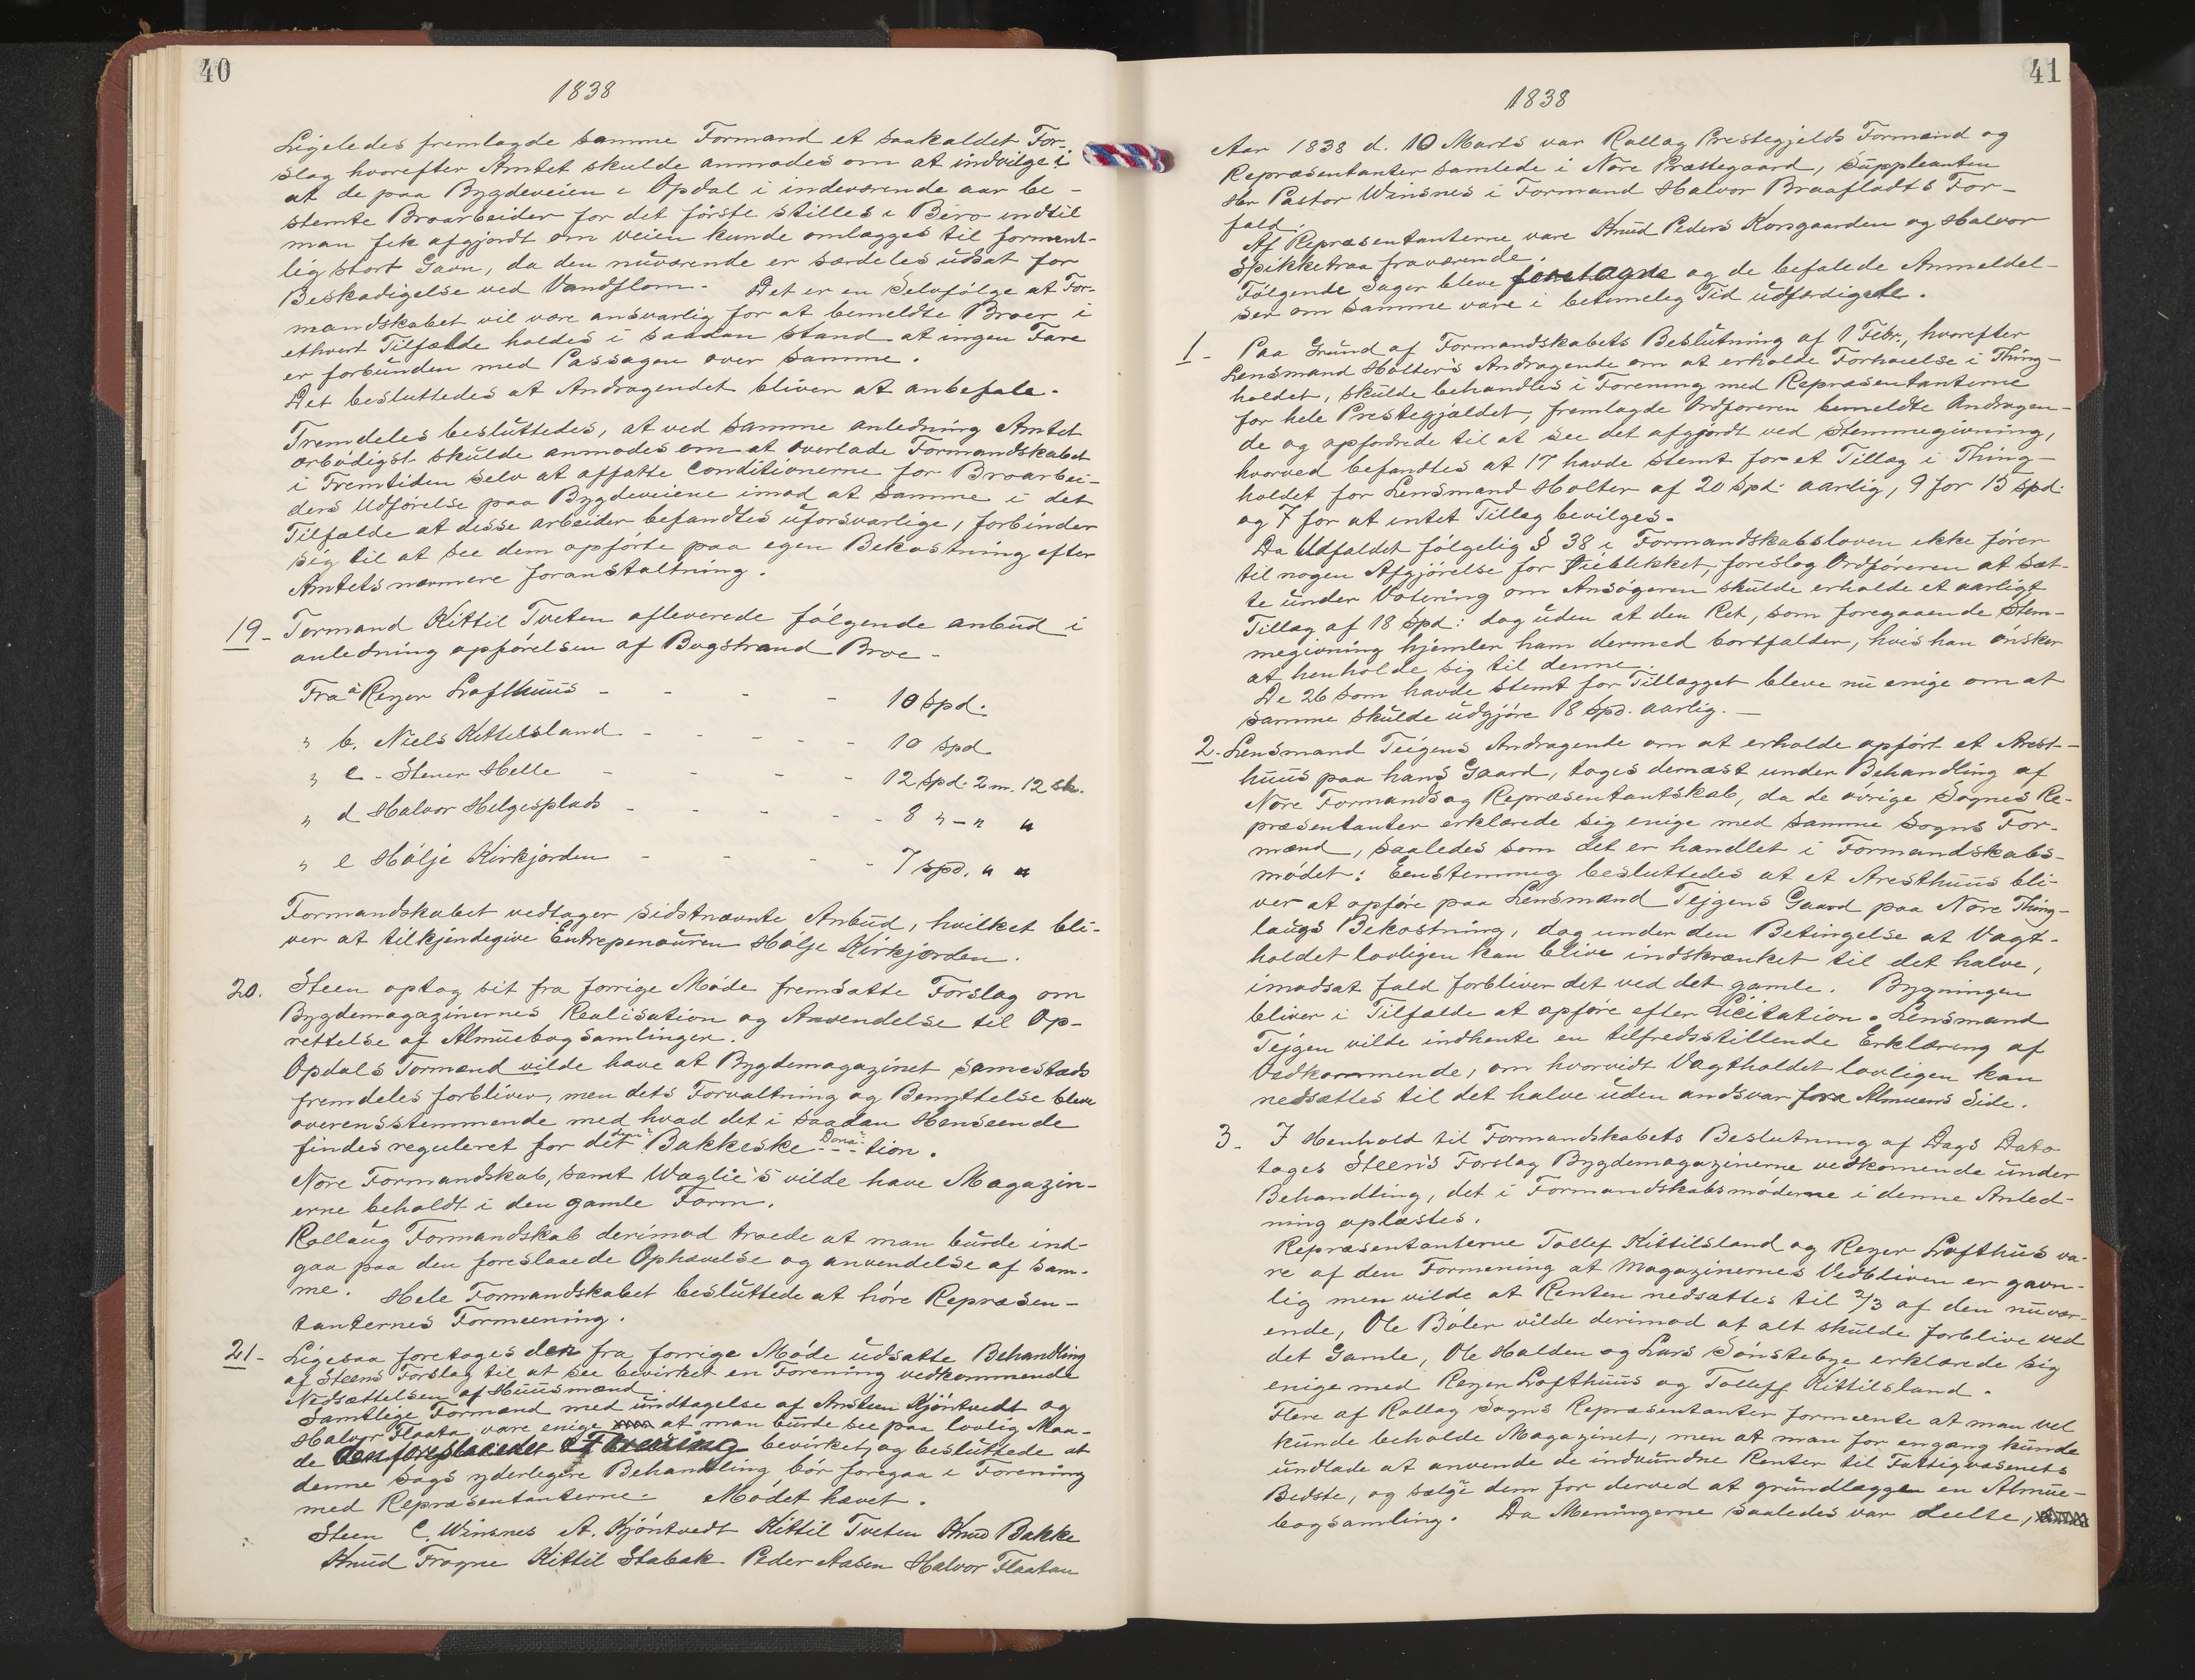 40
1838
Ligeledes fremlagde samme Formand et saakaldet For-
slag hvorefter Amtet skulde anmodes om at indvilge i
at de paa Bygdeveien i Opdal i indeværende aar be-
stemte Broarbeider for det förste stilles i Bero indtil
man fik afgjordt om veien kunde omlægges til forment-
lig stort Gavn, da den nuværende er særdeles udsat for
Beskadigelse ved Vandflom. Det er en Selvfölge at For-
mandskabet vil være ansvarlig for at bemeldte Broer i
ethvert Tilfælde holdes i saadan stand at ingen Fare
er forbunden med Passagen over samme.
Det besluttedes at Andragendet bliver at anbefale.
Fremdeles besluttedes, at ved samme anledning Amtet
ærbödigst skulde anmodes om at overlade Formandskabet
i Fremtiden selv at affatte Conditionerne for Broarbei-
ders Udförelse paa Bygdeveiene imod at samme i det
Tilfælde at disse arbeider befandtes uforsvarlige, forbinder
sig til at see dem opförte paa egen Bekostning efter
Amtets nærmere foranstaltning.
19- Formand Kittil Tveten afleverede fölgende anbud i
anledning opförelsen af Bogstrand Broe -
Fra a Reyer Lofthuus - - - - 10 Spd.
" b. Niels Kittelsland - - - - 10 spd
" c - Stener Helle - - - - 12 Spd. 2 m. 12 sk.
" d Halvor Helgesplads - - - - 8 " - " "
" e Hölje Kirkjorden - - - - 7 spd. " "
Formandskabet vedtager sidstnævnte Anbud, hvilket bli-
ver at tilkjendegive Entrepenöuren Hölje Kirkjorden.
20. Steen optog sit fra forrige Möde fremsatte Forslag om
Bygdemagazinernes Realisation og Anvendelse til Op-
rettelse af Almuebogsamlinger.
Opdals Formænd vilde have at Bygdemagazinet samesteds
fremdeles forbliver, men dets Forvaltning og Benyttelse bleve
overensstemmende med hvad det i saadan Henseende
findes reguleret for det den Bakkeske Dona-tion.
Nore Formandskab, samt Waglie's vilde have Magazin-
erne beholdt i den gamle Form.
Rollaug Formandskab derimod troede at man burde ind-
gaa paa den foreslaaede Ophævelse og anvendelse af sam-
me. Hele Formandskabet besluttede at höre Repræsen-
tanternes Formeening.
21- Ligesaa foretoges den fra forrige Möde udsatte Behandling
af Steens Forslag til at see bevirket en Forening vedkommende
Nedsættelsen af Huusmænd.
Samtlige Formænd med undtagelse af Ansteen Kjöntvedt og
Halvor Flaata vare enige at man burde see paa lovlig Maa-
de den foreslaaede Forening bevirket, og besluttede at
denne Sags yderligere Behandling bör foregaa i Forening
med Repræsentanterne. Mödet hævet.
Steen C. Winsnes A. Kjöntvedt Kittil Tveten Knud Bakke
Knud Frogne Kittil Stabæk Peder Aasen Halvor Flaatan
41
1838
Aar 1838 d. 10 Marts var Rollag Prestegjelds Formænd og
Repræsentanter samlede i Nore Præstegaard, Suppleanten
Hr Pastor Winsnes i Formand Halvor Braaflodts For-
fald.
Af Repræsentanterne vare Knud Peders Korsgaarden og Halvor
Spikketraa fraværende.
Fölgende Sager bleve foretagne og de befalede Anmeldel-
ser om samme vare i betimelig Tid udfærdigede.
1- Paa Grund af Formandskabets Beslutning af 1 Febr., hvorefter
Lensmand Holters Andragende om at erholde Forhöielse i Thing-
holdet, skulde behandles i Forening med Repræsentanterne
for hele Prestegjældet, fremlagde Ordföreren bemeldte Andragen-
de og opfordrede til at see det afgjördt ved Stemmegivning,
hvorved befandtes at 17 havde stemt for et Tillæg i Thing-
holdet for Lensmand Holter af 20 Spd. aarlig, 9 for 15 Spd.
og 7 for at intet Tillæg bevilges.
Da Udfaldet fölgelig § 38 i Formandskabsloven ikke förer
til nogen Afgjörelse for Öieblikket, foreslog Ordföreren at sæt-
te under Votering om Ansögeren skulde erholde et aarligt
Tillæg af 18 Spd: dog uden at den Ret, som foregaaende Stem-
megivning hjemler ham dermed bortfalder, hvis han önsker
at henholde sig til denne.
De 26 som havde stemt for Tillægget bleve nu enige om at
samme skulde udgjöre 18 Spd. aarlig.-
2. Lensmand Teigens Andragende om at erholde opfört et Arest-
huus paa hans Gaard, toges dernæst under Behandling af
Nore Formands og Repræsentantskab, da de övrige Sognes Re-
præsentanter erklærede sig enige med samme Sogns For-
mænd, saaledes som det er handlet i Formandskabs-
mödet: Eenstemmig besluttedes at et Aresthuus bli-
ver at opföre paa Lensmand Tejgens Gaard paa Nore Thing-
laugs Bekostning, dog under den Betingelse at Vagt-
holdet lovligen kan blive indskrænket til det halve,
imodsat fald forbliver det ved det gamle. Bygningen
bliver i Tilfælde at opföre efter Licitation. Lensmand
Tejgen vilde indhente en tilfredsstillende Erklæring af
Vedkommende, om hvorvidt Vagtholdet lovligen kan
nedsættes til det halve uden andsvar fora Almuens Side.
3- I Henhold til Formandskabets Beslutning af Dags Dato
toges Steens Forslag Bygdemagazinerne vedkomende under
Behandling, det i Formandskabsmöderne i denne Anled-
ning oplæstes.
Repræsentanterne Tollef Kittilsland og Reyer Lofthus va-
re af den Formening at Magazinernes Vedbliven er gavn-
lig men vilde at Renten nedsættes til 2/3 af den nuvær-
ende, Ole Bölen vilde derimod at alt skulde forblive ved
det Gamle, Ole Halden og Lars Sönstebye erklærede sig
enige med Reyer Lofthuus og Tolleff Kittilsland.
Flere af Rollag Sogns Repræsentanter formeente at man vel
kunde beholde Magazinet, men at man for engang kunde
undlade at anvende de indvundne Renter til Fattigvæsenets
Bedste, og sælge dem for derved at grundlægge en Almue-
bogsamling. Da Meningerne saaledes var deelte,